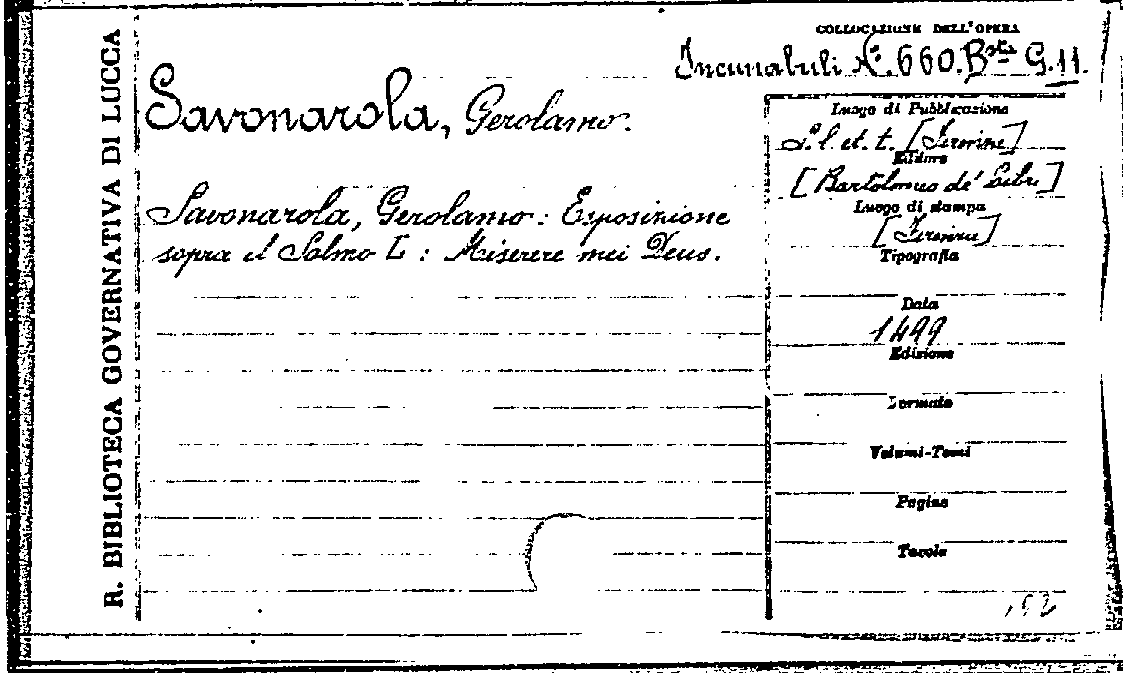 R. BIBLIOTECA GOVERNATIVA DI LUCCA
COLLOCAZIONE DELL'OPERA
Incunabuli N.º 660. Bsta G.11.
Savonarola, Gerolamo.
Savonarola, Gerolamo: Esposizione
sopra il Salmo L: Miserere mei Deus.
Luogo di Pubblicazione
S. l. et. t. [Firenze]
Editore
[Bartolomeo de' Libri]
Luogo di stampa
[Firenze]
Tipografia
Data
1499
Edizione
Formato
Volumi-Tomi
Pagine
Tavole
152